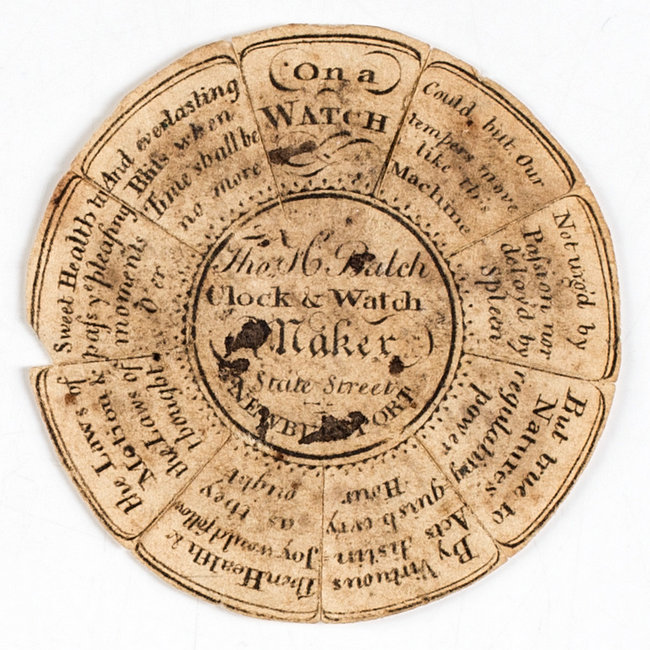 On a
WATCH
Could but Our
tempers move
like this
Machine
Not urg'd by
Passion nor
delay'd by
Spleen
But true to
Natures
regulating
power
By Virtuous
Acts distin-
guish ev'ry
Hour
Then Health &
Joy would follow
as they
ought
the Laws of
Motion &
the Laws of
thought
Sweet Health to
pass ye pleasing
moments
o'er
And everlasting
Bliss when
Time shall be
no more
Thos H Balch
Clock & Watch
Maker
State Street
NEWBURYPORT